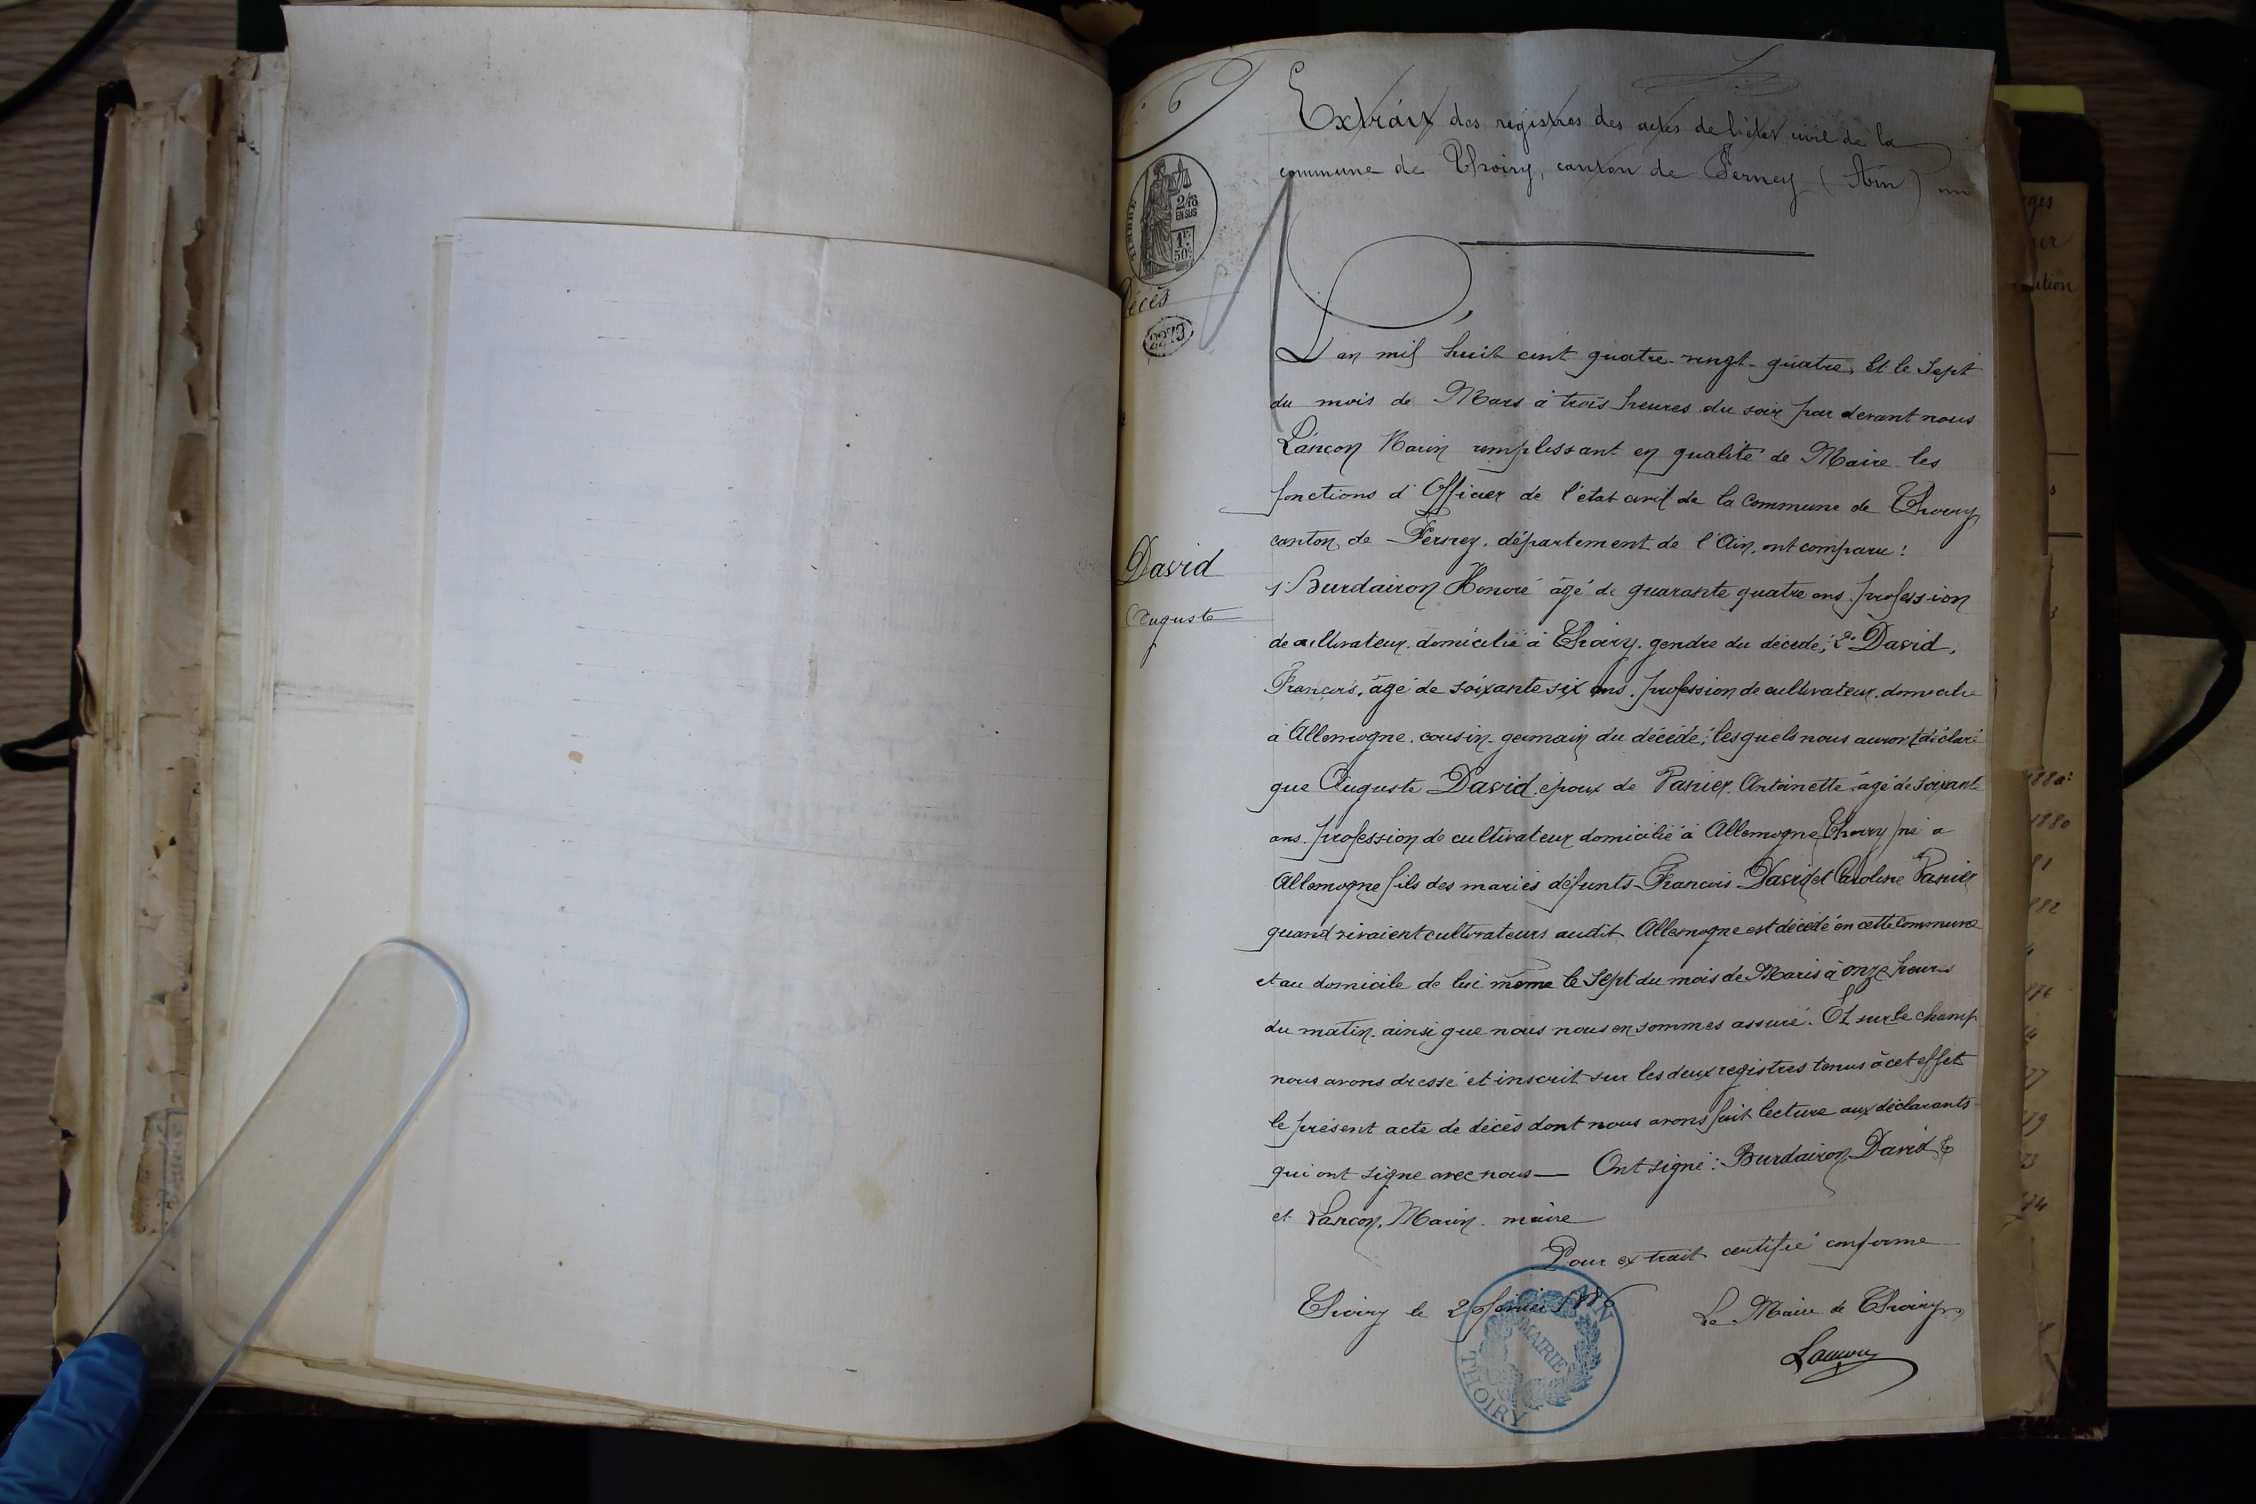 69
Extrait des registres des actes de l'état civil de la
commune de Thoiry, canton de Ferney (Ain)
TIMBRE
2/10
EN SUS
1F
50c
Décès
2273
L'an mil huit cent quatre-vingt-quatre, et le sept
du mois de Mars à trois heures du soir par devant nous
Lançon Marin remplissant en qualité de Maire les
fonctions d'Officier de l'état civil de la commune de Thoiry
canton de Ferney, département de l'Ain, ont comparu :
David
Auguste
1° Burdairon Honoré âgé de quarante quatre ans, profession
de cultivateur domicilié à Thoiry, gendre du décédé; 2° David,
François, âgé de soixante six ans, profession de cultivateur, domicilié
à Allemogne, cousin-germain du décédé; lesquels nous auront déclaré
que Auguste David, époux de Panier Antoinette, âgé de soixante
ans, profession de cultivateur domicilié à Allemogne (Thoiry) né à
Allemogne fils des mariés défunts François David et Caroline Panier
quand vivaient cultivateurs audit Allemogne est décédé en cette commune
et au domicile de lui même le sept du mois de Mars à onze heures
du matin, ainsi que nous nous en sommes assuré. Et sur le champ
nous avons dressé et inscrit sur les deux registres tenus à cet effet
le présent acte de décès dont nous avons fait lecture aux déclarants
qui ont signé avec nous — Ont signé : Burdairon, David F
et Lançon, Marin, maire
Pour extrait certifié conforme
Thoiry le février 1886
Le Maire de Thoiry
Lançon
MAIRIE
THOIRY
AIN